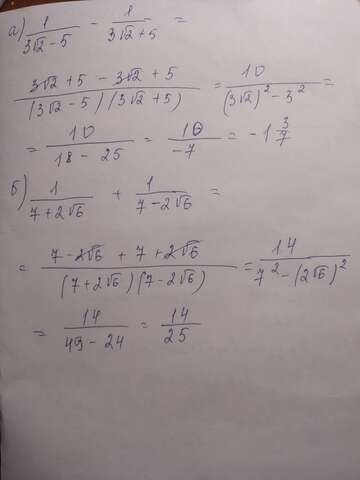 а) 1/(3√2 - 5) - 1/(3√2 + 5) =
(3√2 + 5 - 3√2 + 5)/((3√2 - 5)(3√2 + 5)) = 10/((3√2)² - 3²) =
= 10/(18 - 25) = 10/(-7) = -1 3/7
б) 1/(7 + 2√6) + 1/(7 - 2√6) =
= (7 - 2√6 + 7 + 2√6)/((7 + 2√6)(7 - 2√6)) = 14/(7² - (2√6)²)
= 14/(49 - 24) = 14/25